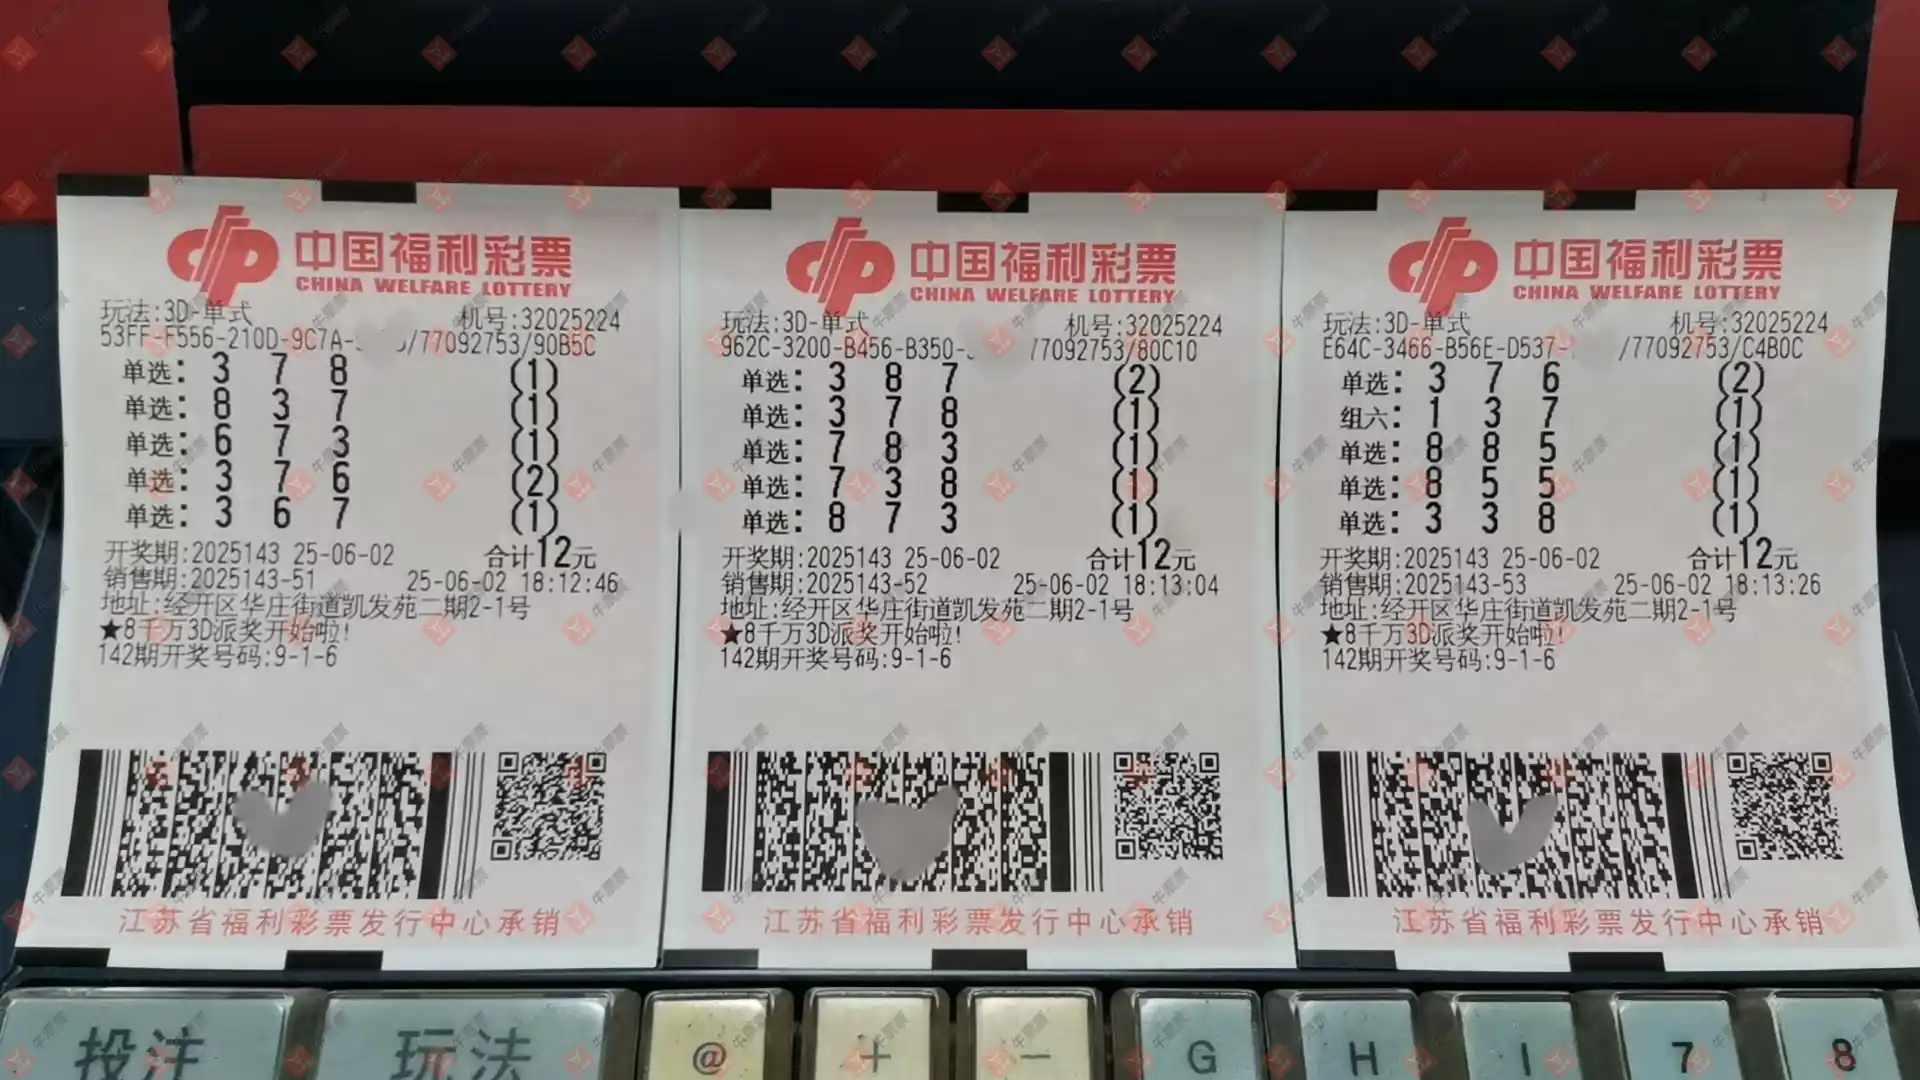 中国福利彩票
CHINA WELFARE LOTTERY
玩法:3D-单式 机号:32025224
53FF-F556-210D-9C7A- /77092753/90B5C
单选: 3 7 8 (1)
单选: 8 3 7 (1)
单选: 6 7 3 (1)
单选: 3 7 6 (2)
单选: 3 6 7 (1)
开奖期:2025143 25-06-02 合计12元
销售期:2025143-51 25-06-02 18:12:46
地址:经开区华庄街道凯发苑二期2-1号
★8千万3D派奖开始啦!
142期开奖号码:9-1-6
江苏省福利彩票发行中心承销
中国福利彩票
CHINA WELFARE LOTTERY
玩法:3D-单式 机号:32025224
962C-3200-B456-B350- /77092753/80C10
单选: 3 8 7 (2)
单选: 3 7 8 (1)
单选: 7 8 3 (1)
单选: 7 3 8 (1)
单选: 8 7 3 (1)
开奖期:2025143 25-06-02 合计12元
销售期:2025143-52 25-06-02 18:13:04
地址:经开区华庄街道凯发苑二期2-1号
★8千万3D派奖开始啦!
142期开奖号码:9-1-6
江苏省福利彩票发行中心承销
中国福利彩票
CHINA WELFARE LOTTERY
玩法:3D-单式 机号:32025224
E64C-3466-B56E-D537- /77092753/C4B0C
单选: 3 7 6 (2)
组六: 1 3 7 (1)
单选: 8 8 5 (1)
单选: 8 5 5 (1)
单选: 3 3 8 (1)
开奖期:2025143 25-06-02 合计12元
销售期:2025143-53 25-06-02 18:13:26
地址:经开区华庄街道凯发苑二期2-1号
★8千万3D派奖开始啦!
142期开奖号码:9-1-6
江苏省福利彩票发行中心承销
投注 玩法 @ + - G H I 7 8